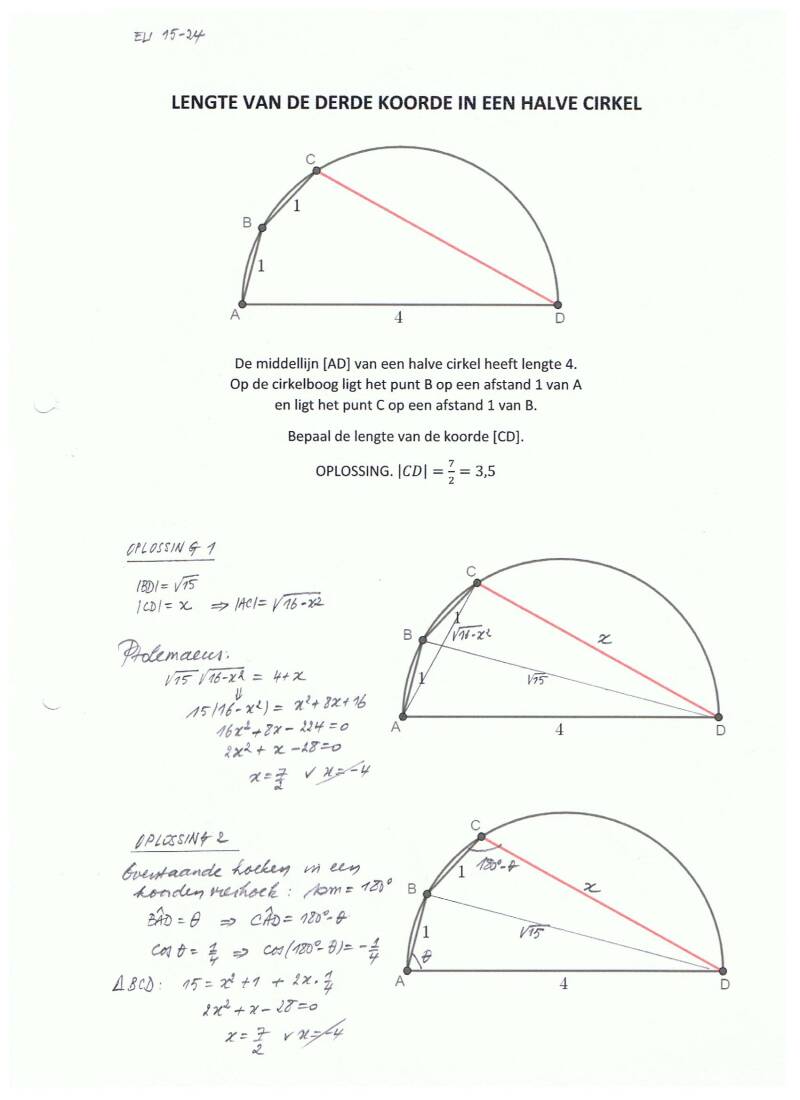 EU 15-24
LENGTE VAN DE DERDE KOORDE IN EEN HALVE CIRKEL
C
B
1
1
A
4
D
De middellijn [AD] van een halve cirkel heeft lengte 4.
Op de cirkelboog ligt het punt B op een afstand 1 van A
en ligt het punt C op een afstand 1 van B.
Bepaal de lengte van de koorde [CD].
OPLOSSING. |CD| = 7/2 = 3,5
OPLOSSING 1
|BD| = √15
|CD| = x ⇒ |AC| = √16-x²
Ptolemaeus:
√15 √16-x² = 4+x
⇓
15(16-x²) = x²+8x+16
16x²+8x-224=0
2x²+x-28=0
x=7/2 v x=-4
C
B
1
√16-x²
x
1
√15
A
4
D
OPLOSSING 2
Overstaande hoeken in een
koordenvierhoek: som = 180°
BÂD = θ ⇒ CÂD = 180°-θ
cos θ = 1/4 ⇒ cos(180°-θ) = -1/4
ΔBCD: 15 = x²+1 + 2x.1/4
2x²+x-28=0
x=7/2 v x=-4
C
180°-θ
B
1
x
1
√15
θ
A
4
D